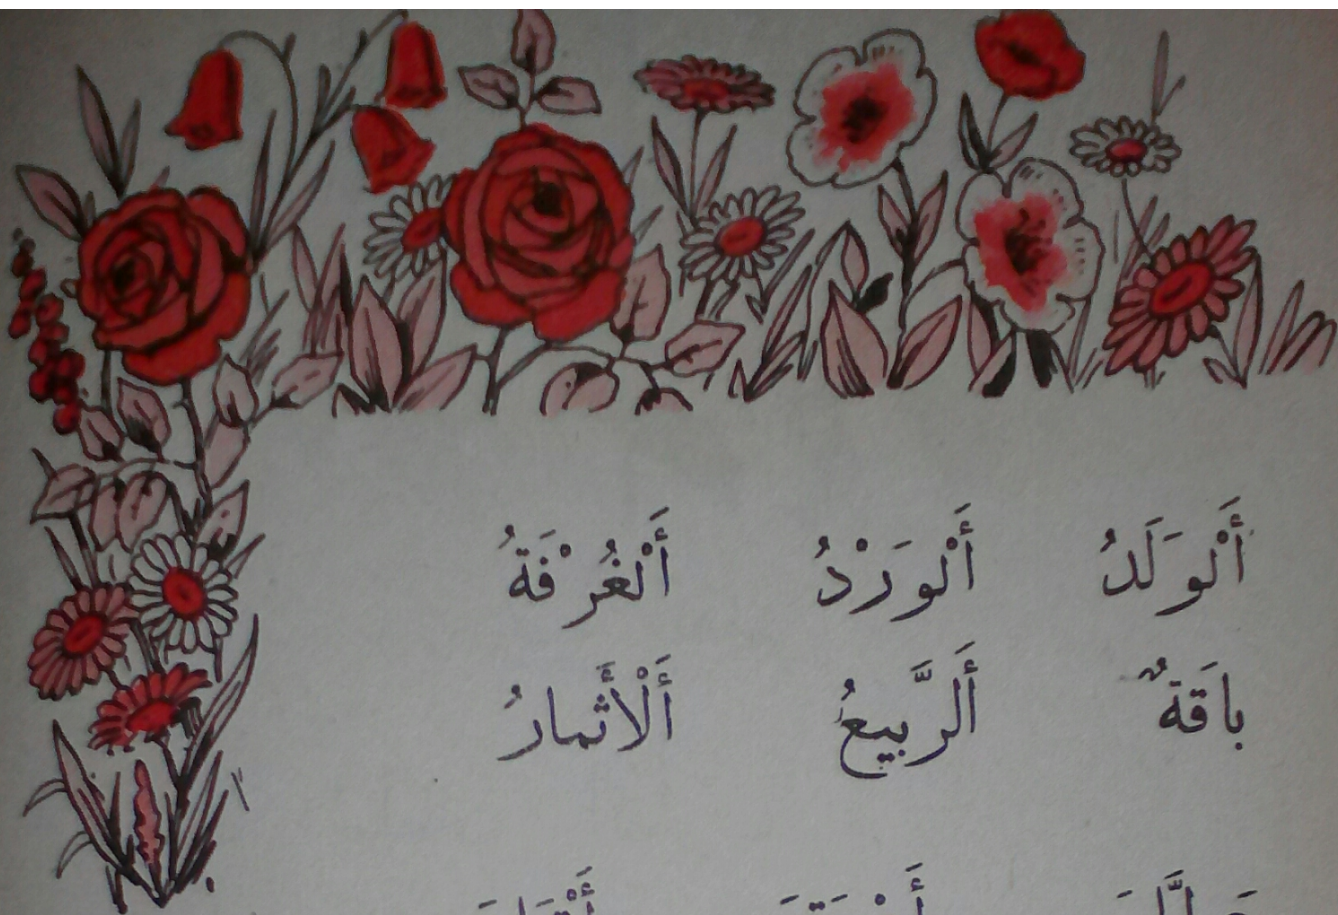 أَلْوَلَدُ أَلْوَرْدُ أَلْغُرْفَةُ
بَاقَةٌ أَلرَّبِيعُ أَلْأَثْمارُ